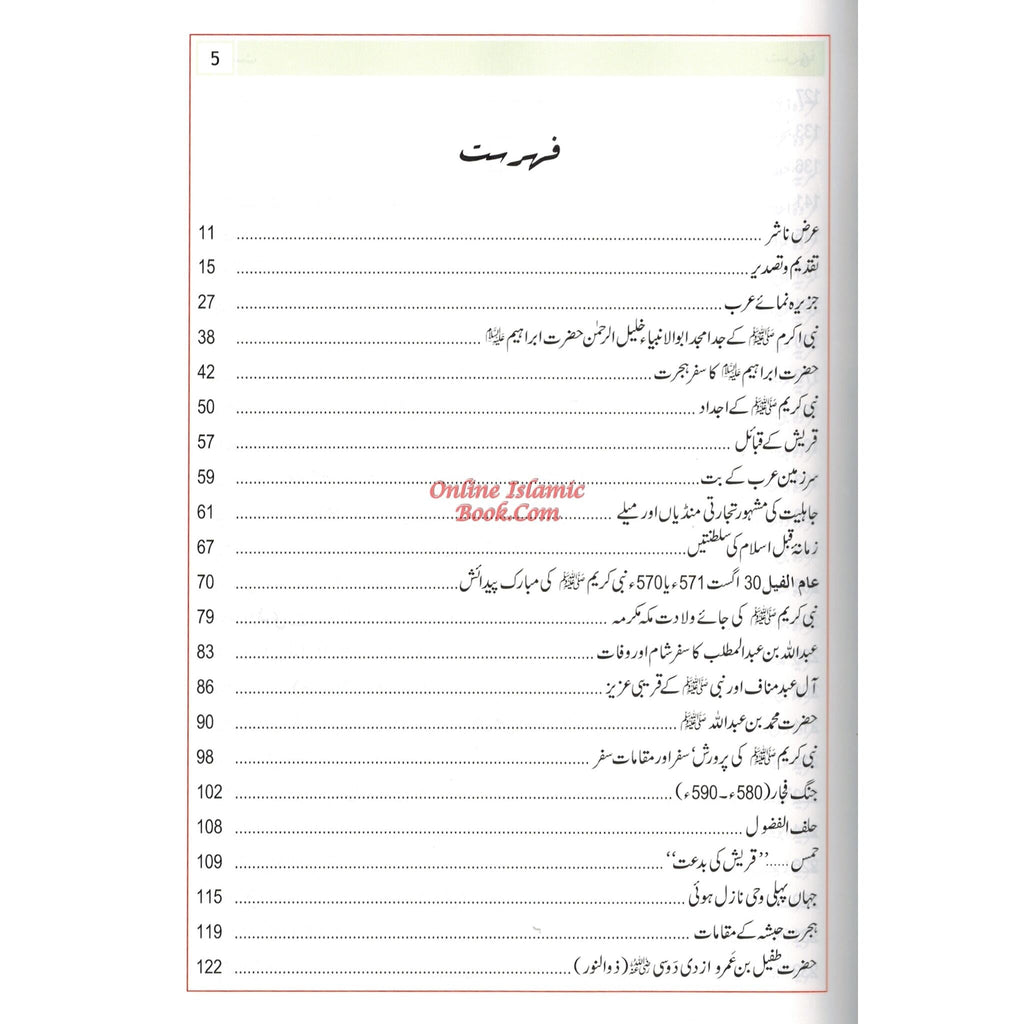 5
فہرست
عرض ناشر ........ 11
تقدیم و تصدیر ........ 15
جزیرہ نمائے عرب ........ 27
نبی اکرم ﷺ کے جد امجد ابوالانبیاء خلیل الرحمٰن حضرت ابراہیم علیہ السلام ........ 38
حضرت ابراہیم علیہ السلام کا سفر ہجرت ........ 42
نبی کریم ﷺ کے اجداد ........ 50
قریش کے قبائل ........ 57
سرزمین عرب کے بت ........ 59
Online Islamic
Book.Com
جاہلیت کی مشہور تجارتی منڈیاں اور میلے ........ 61
زمانۂ قبل اسلام کی سلطنتیں ........ 67
عام الفیل 30 اگست 571ء یا 570ء نبی کریم ﷺ کی مبارک پیدائش ........ 70
نبی کریم ﷺ کی جائے ولادت مکہ مکرمہ ........ 79
عبداللہ بن عبدالمطلب کا سفر شام اور وفات ........ 83
آل عبد مناف اور نبی ﷺ کے قریبی عزیز ........ 86
حضرت محمد بن عبداللہ ﷺ ........ 90
نبی کریم ﷺ کی پرورش، سفر اور مقامات سفر ........ 98
جنگ فجار (580ء۔590ء) ........ 102
حلف الفضول ........ 108
حمس ...... ’’قریش کی بدعت‘‘ ........ 109
جہاں پہلی وحی نازل ہوئی ........ 115
ہجرت حبشہ کے مقامات ........ 119
حضرت طفیل بن عَمرو ازدی دَوسی رضی اللہ عنہ (ذوالنور) ........ 122